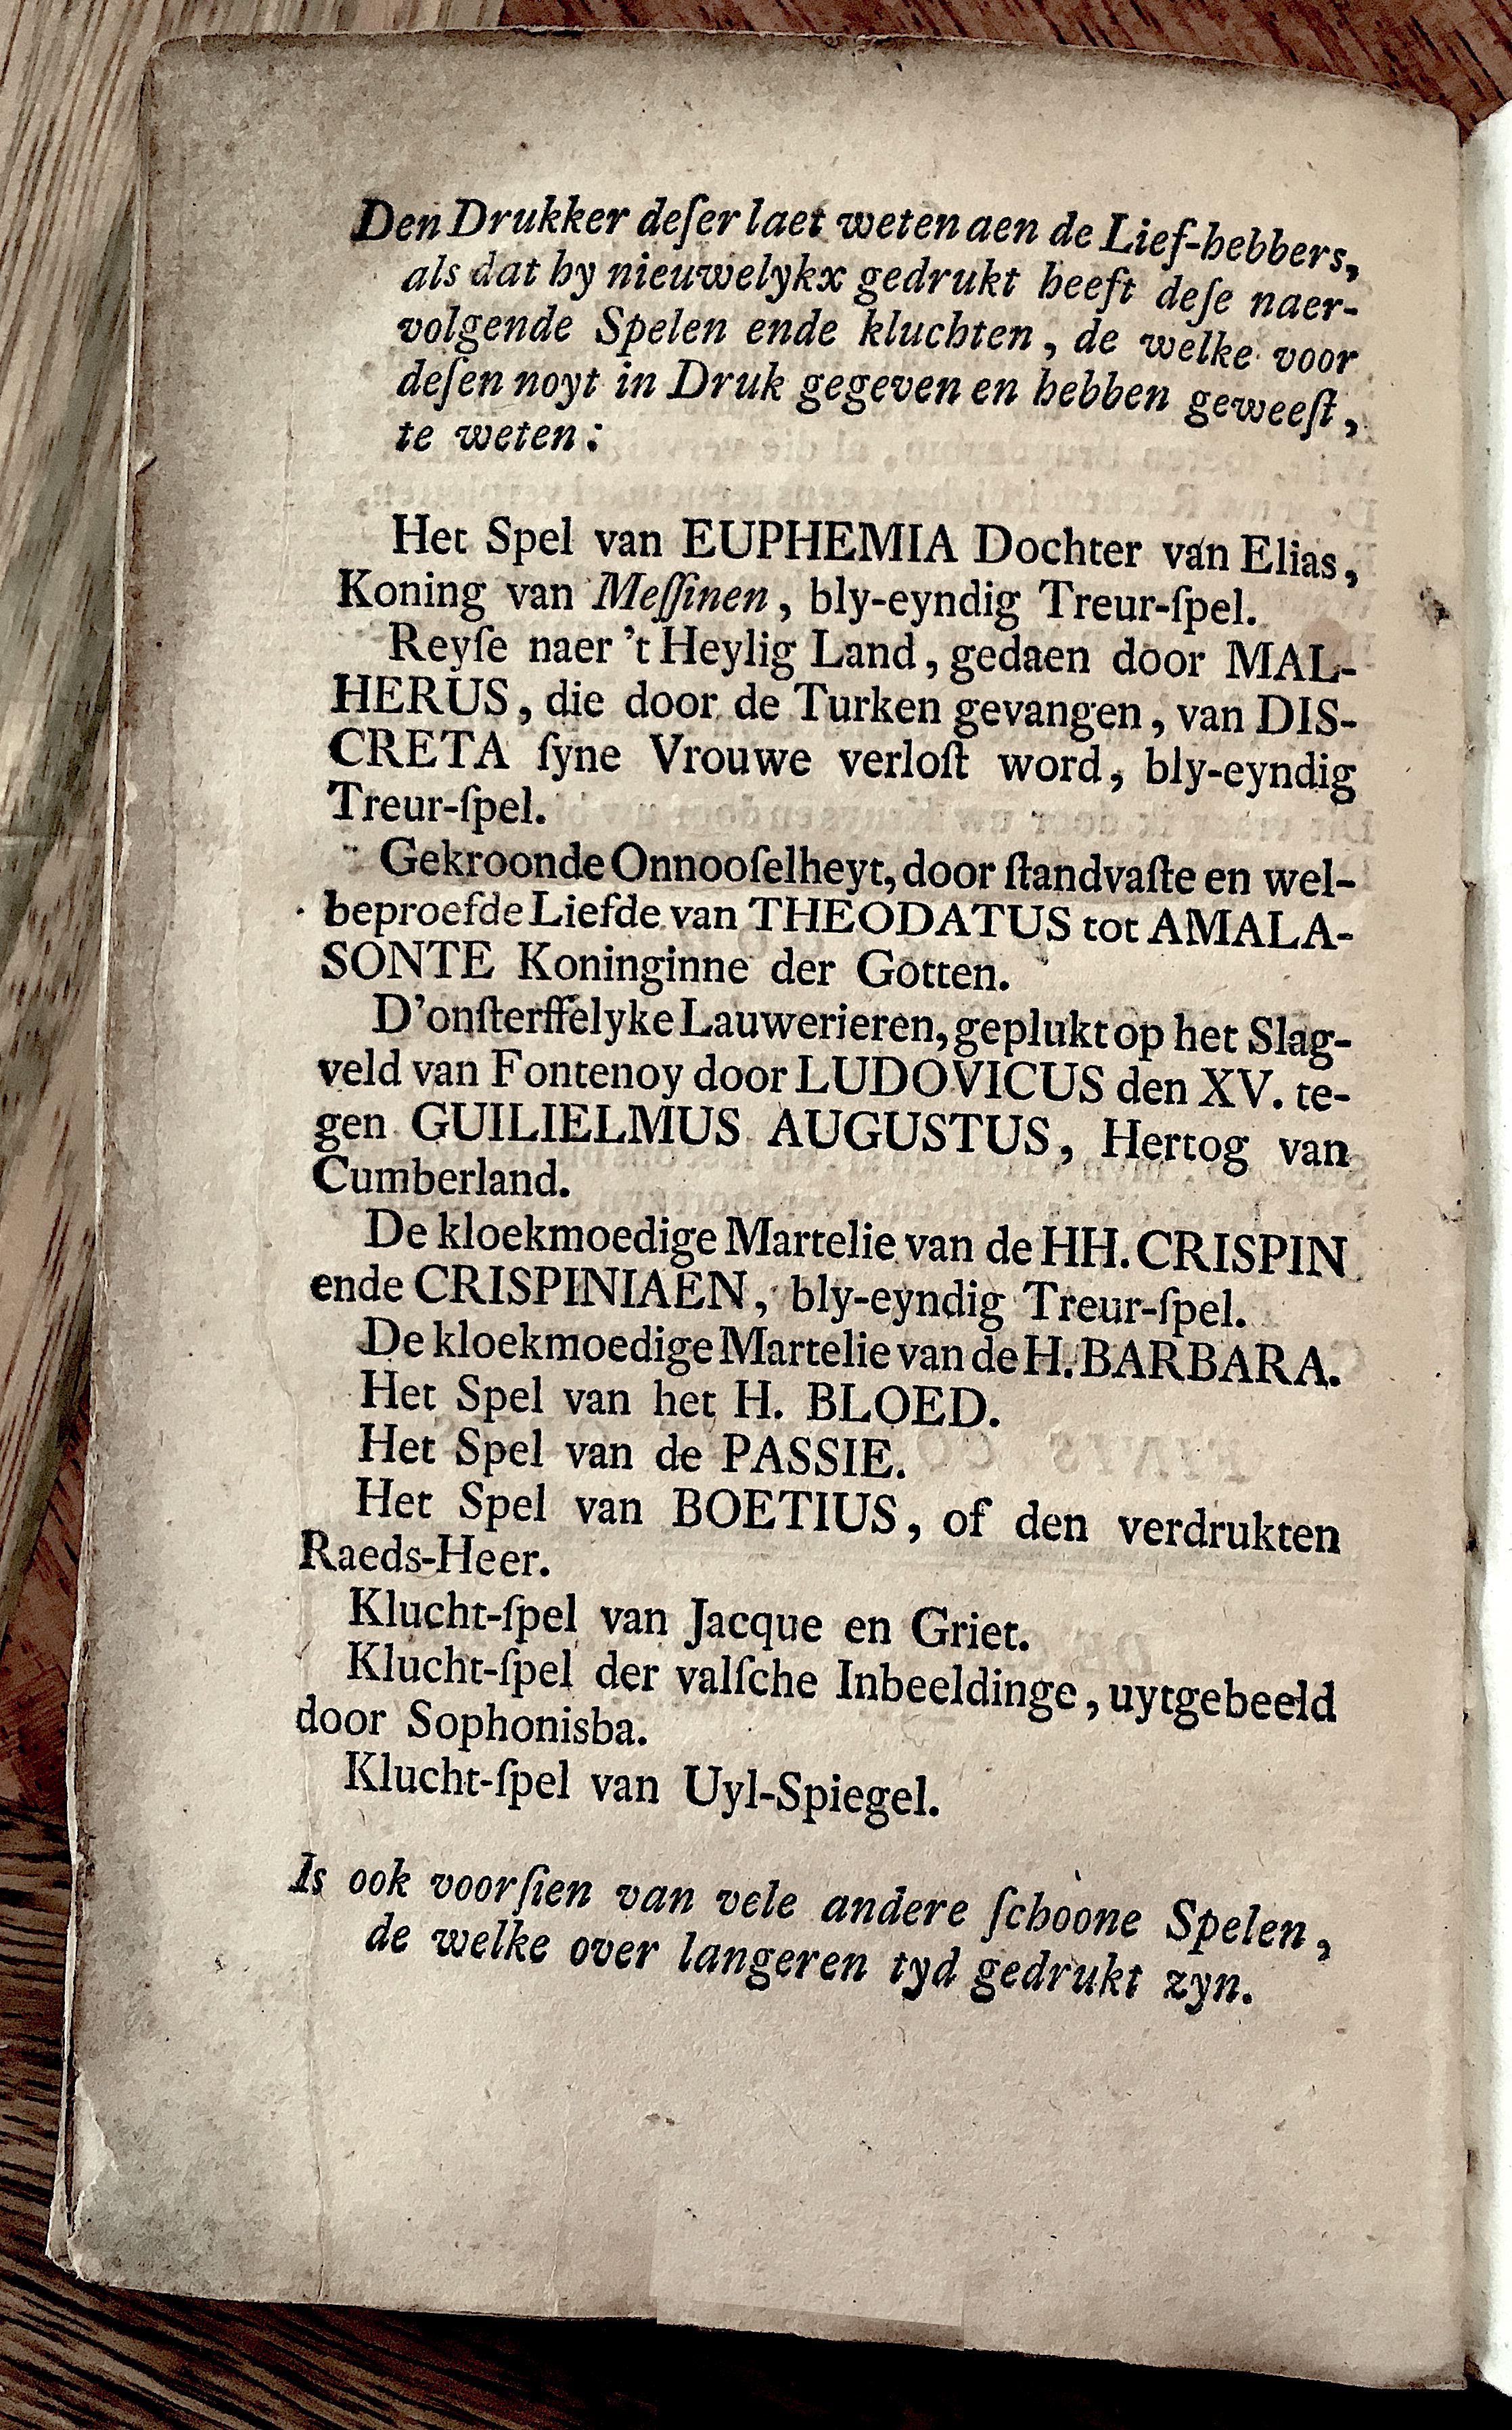 Den Drukker deſer laet weten aen de Lief-hebbers,
als dat hy nieuwelykx gedrukt heeft deſe naer-
volgende Spelen ende kluchten, de welke voor
deſen noyt in Druk gegeven en hebben geweeſt,
te weten:
Het Spel van EUPHEMIA Dochter van Elias,
Koning van Meſſinen, bly-eyndig Treur-ſpel.
Reyſe naer 't Heylig Land, gedaen door MAL-
HERUS, die door de Turken gevangen, van DIS-
CRETA ſyne Vrouwe verloſt word, bly-eyndig
Treur-ſpel.
Gekroonde Onnooſelheyt, door ſtandvaſte en wel-
beproefde Liefde van THEODATUS tot AMALA-
SONTE Koninginne der Gotten.
D'onſterffelyke Lauwerieren, geplukt op het Slag-
veld van Fontenoy door LUDOVICUS den XV. te-
gen GUILIELMUS AUGUSTUS, Hertog van
Cumberland.
De kloekmoedige Martelie van de HH. CRISPIN
ende CRISPINIAEN, bly-eyndig Treur-ſpel.
De kloekmoedige Martelie van de H. BARBARA.
Het Spel van het H. BLOED.
Het Spel van de PASSIE.
Het Spel van BOETIUS, of den verdrukten
Raeds-Heer.
Klucht-ſpel van Jacque en Griet.
Klucht-ſpel der valſche Inbeeldinge, uytgebeeld
door Sophonisba.
Klucht-ſpel van Uyl-Spiegel.
Is ook voorſien van vele andere ſchoone Spelen,
de welke over langeren tyd gedrukt zyn.